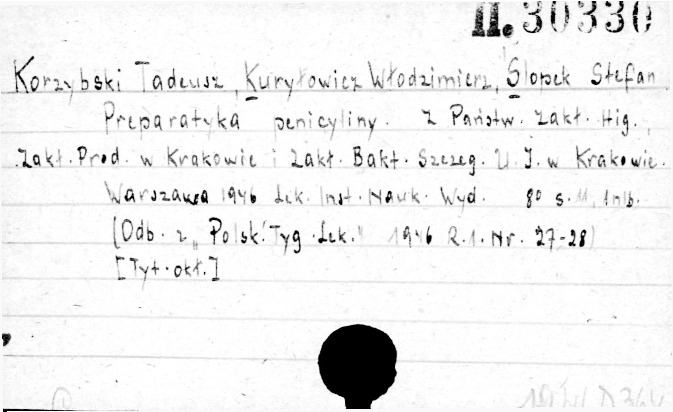 II. 30330
Korzybski Tadeusz, Kuryłowicz Włodzimierz, Slopek Stefan
Preparatyka penicyliny. Z Państw. Zakł. Hig.,
Zakł. Prod. w Krakowie i Zakł. Bakt. Szczeg. U. J. w Krakowie.
Warszawa 1946 Lek. Inst. Nauk. Wyd. 8o s. 11, 1 nlb.
(Odb. z „Polsk. Tyg. Lek." 1946 R. 1. Nr. 27-28)
[Tyt. okł.]